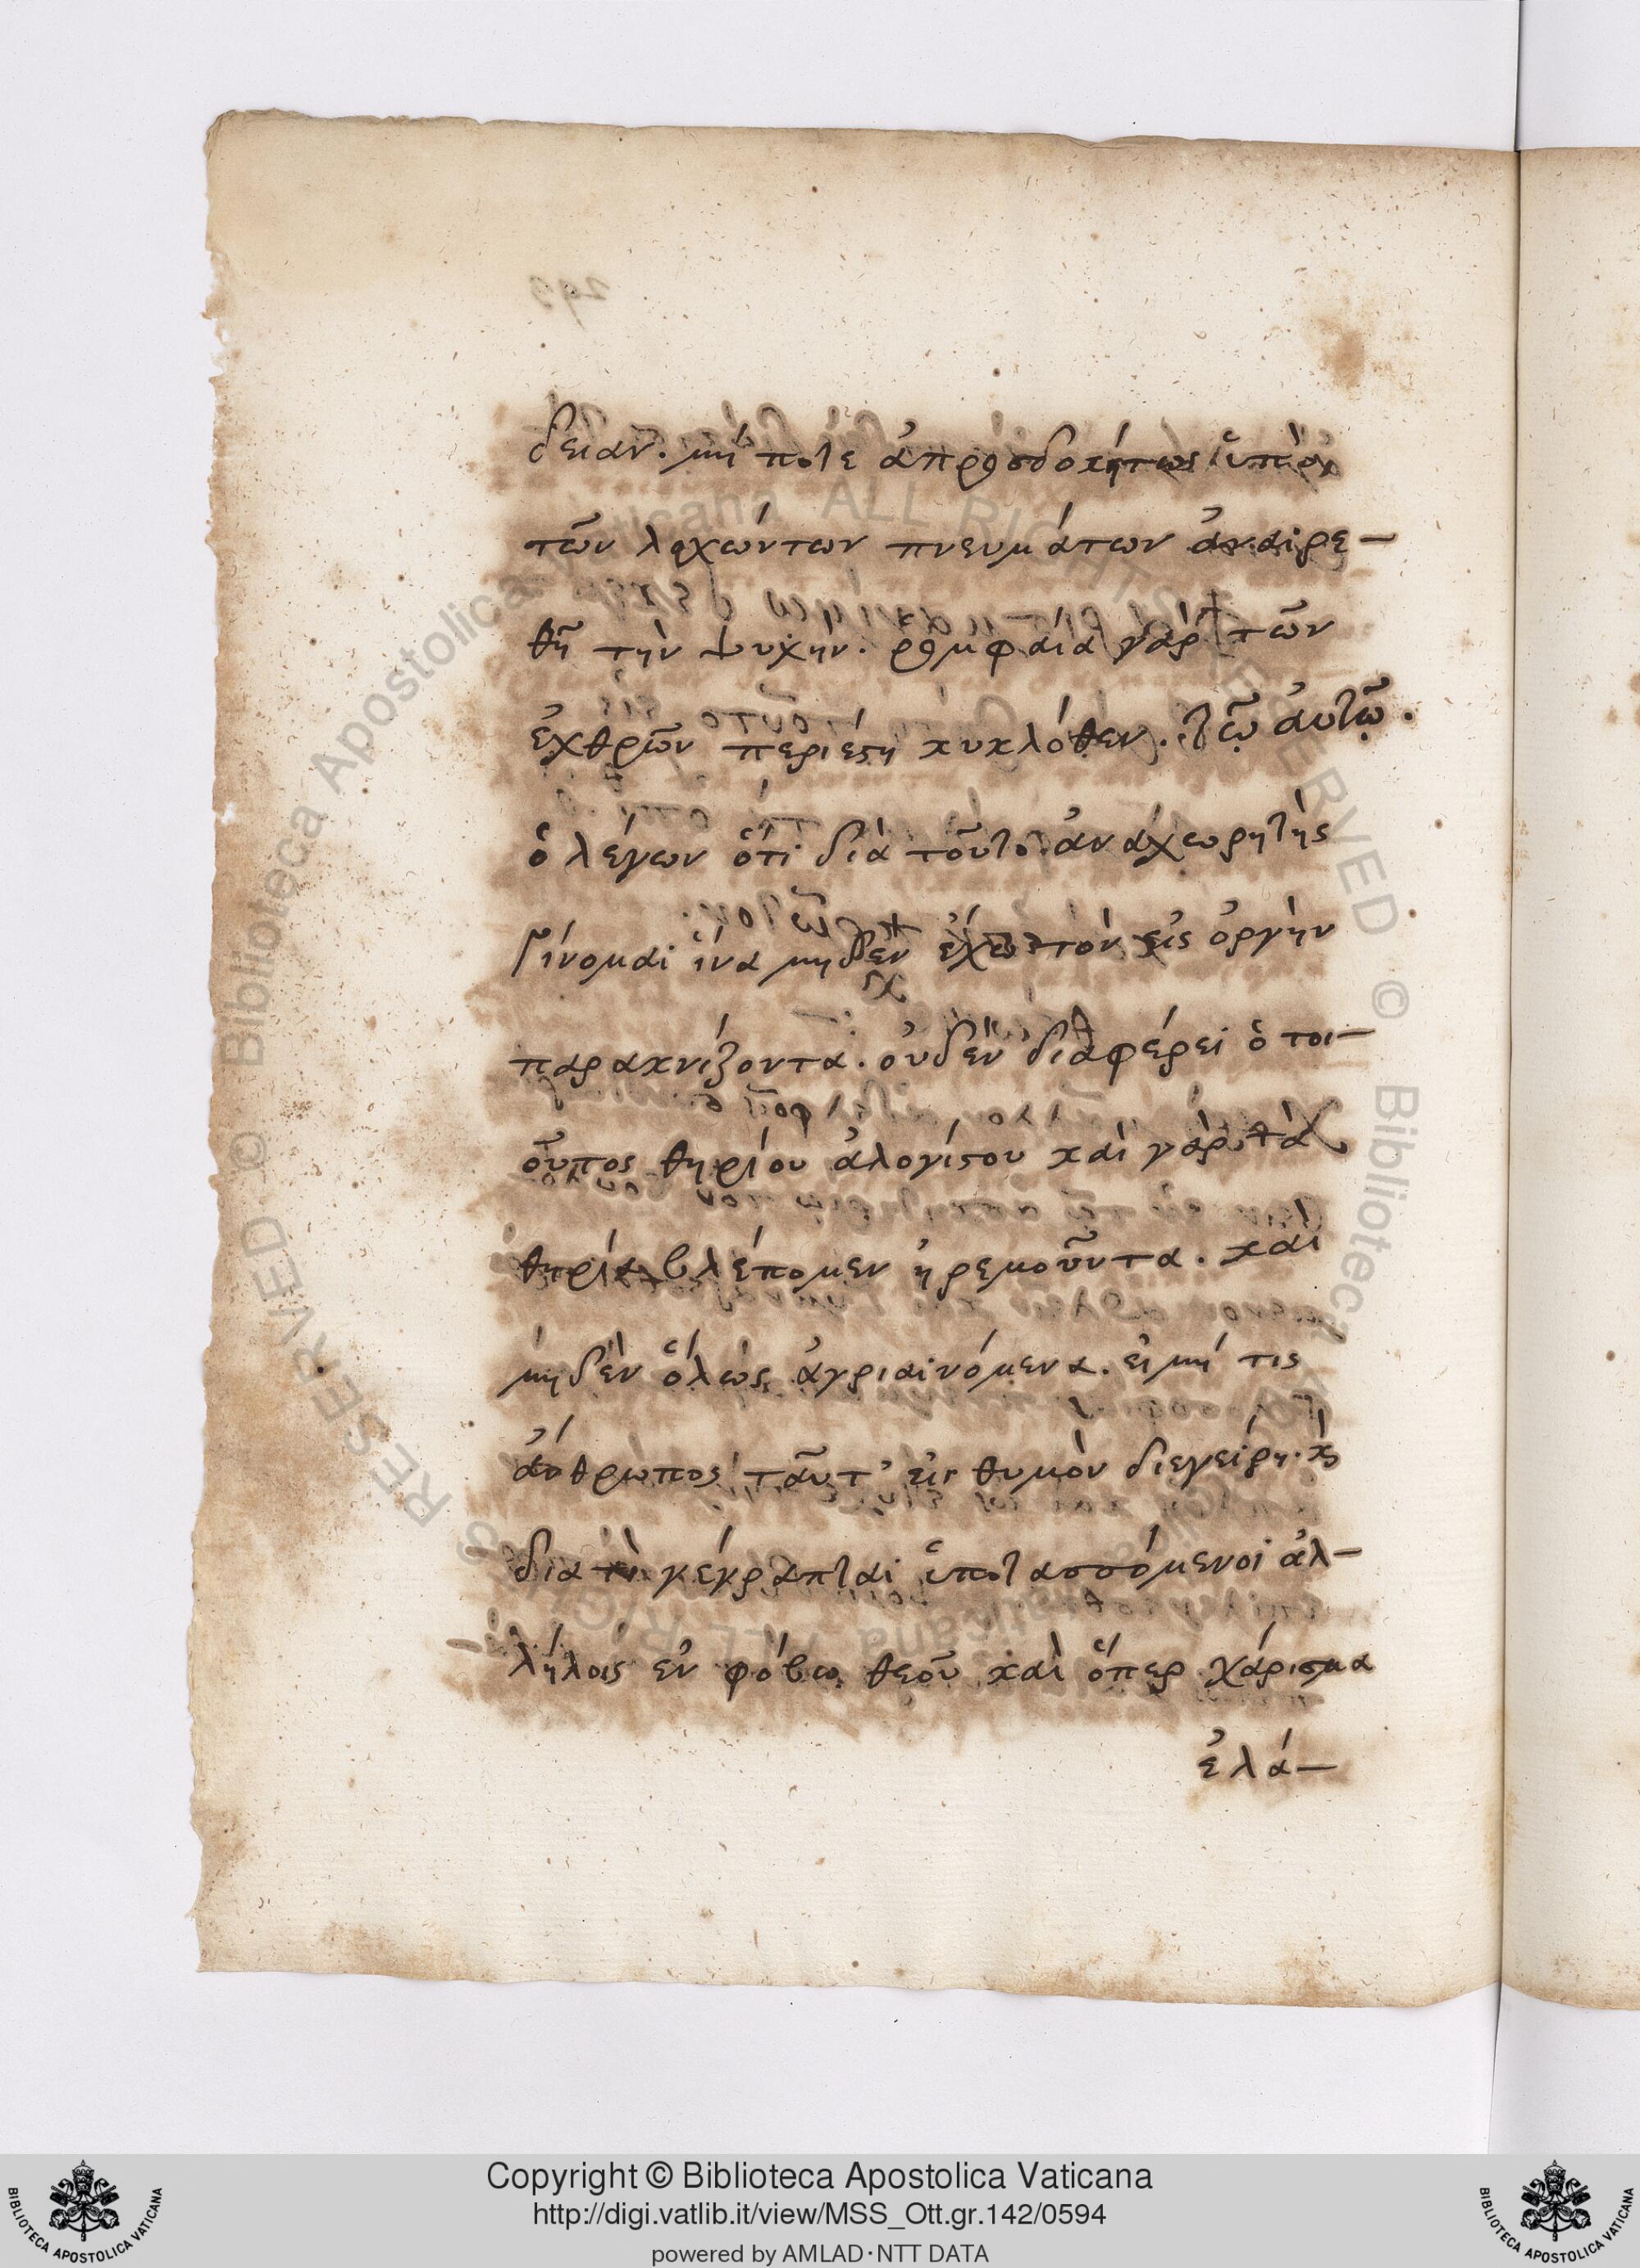 δειαν. μή ποτε ἀπροσδοκήτως ὑπὸ
τῶν λαχώντων πνευμάτων ἀναιρε-
θῆ τὴν ψυχήν. ρομφαία γὰρ τῶν
ἐχθρῶν περιέστη κυκλόθεν. τῷ αὐτῷ.
ὁ λέγων ὅτι διὰ τοῦτο ἀναχωρητὴς
γίνομαι ἵνα μηδὲν εἰς ὀργὴν
παρακνίζοντα. οὐδὲν διαφέρει ὁ τοι-
οῦτος θηρίου ἀλογίστου καὶ γὰρ τὰ
θηρία βλέπομεν ἠρεμοῦντα. καὶ
μηδὲν ὅλως ἀγριαινόμενα. εἰ μή τις
ἄνθρωπος ταῦτ' εἰς θυμὸν διεγείρη. κ
διατὶ γέγραπται ὑποτασσόμενοι ἀλ-
λήλοις ἐν φόβω θεοῦ καὶ ὅπερ χάρισμα
ἐλά-
Copyright © Biblioteca Apostolica Vaticana
http://digi.vatlib.it/view/MSS_Ott.gr.142/0594
powered by AMLAD·NTT DATA
BIBLIOTECA APOSTOLICA VATICANA
BIBLIOTECA APOSTOLICA VATICANA